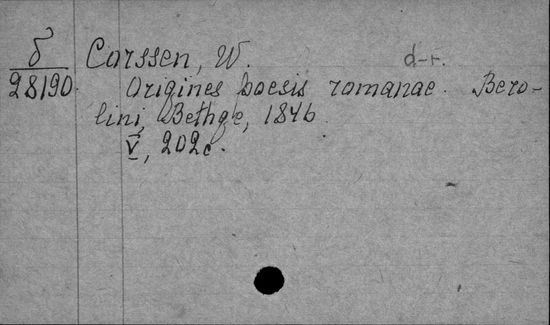 δ
28190
Corssen, W. d-r.
Origines poesis romanae. Bero-
lini, Bethge, 1846
V, 202 с.